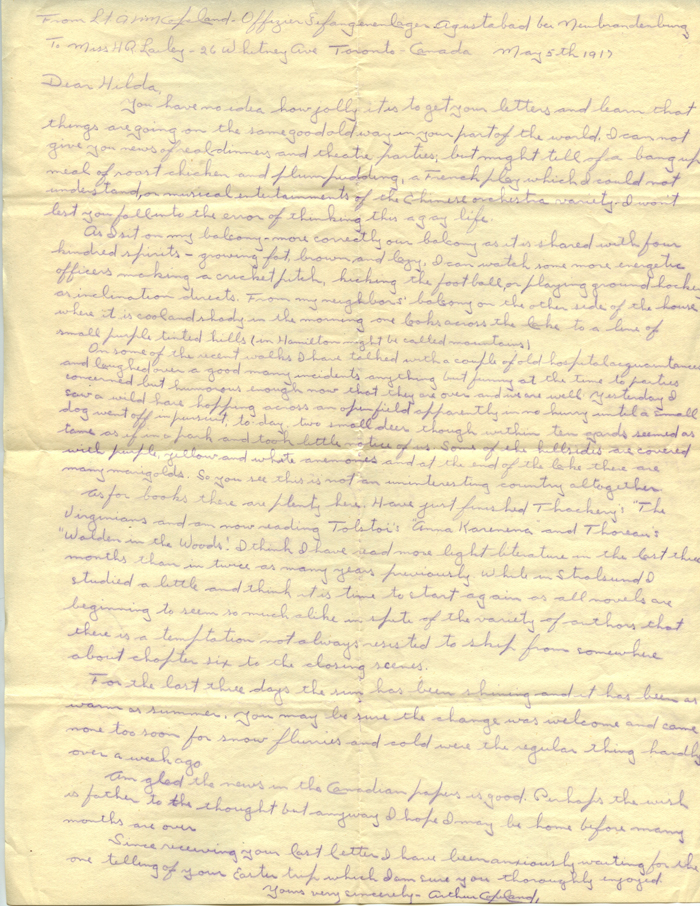 From Lt A W M Copeland - Offizier Gefangenenlager Agustabad bei Neubrandenburg
To Miss H A Lailey - 26 Whitney Ave Toronto - Canada May 5th 1917
Dear Hilda,
You have no idea how jolly it is to get your letters and learn that
things are going on the same good old way in your part of the world. I can not
give you news of real dinners and theatre parties; but might tell of a bang up
meal of roast chicken and plum pudding, a French play which I could not
understand, or musical entertainments of the Chinese orchestra variety. I won't
lest you fall into the error of thinking this a gay life.
As I sit on my balcony - more correctly our balcony as it is shared with four
hundred spirits - growing fat, brown and lazy, I can watch some more energetic
officers making a cricket pitch, kicking the football, or playing ground hockey
as inclination directs. From my neighbors' balcony on the other side of the house
where it is cool and shady in the morning one looks across the lake to a line of
small purple tinted hills (in Hamilton might be called mountains)
On some of the recent walks I have talked with a couple of old hospital acquaintances
and laughed over a good many incidents anything but funny at the time to parties
concerned but humorous enough now that they are over and we are well. Yesterday I
saw a wild hare hopping across an open field apparently in no hurry until a small
dog went off in pursuit, to-day two small deer though within ten yards seemed as
tame as if in a park and took little notice of us. Some of the hillsides are covered
with purple, yellow and white anemones and at the end of the lake there are
many marigolds. So you see this is not an uninteresting country altogether
As for books there are plenty here. Have just finished Thackery's "The
Virginians and am now reading Tolstoi's Anna Karenena and Thoreau's
"Walden in the Woods". I think I have read more light literature in the last three
months than in twice as many years previously. While in Stralsund I
studied a little and think it is time to start again as all novels are
beginning to seem so much alike in spite of the variety of authors that
there is a temptation not always resisted to skip from somewhere
about chapter six to the closing scenes.
For the last three days the sun has been shining and it has been as
warm as summer. You may be sure the change was welcome and came
none too soon for snow flurries and cold were the regular thing hardly
over a week ago
Am glad the news in the Canadian papers is good. Perhaps the wish
is father to the thought but anyway I hope I may be home before many
months are over
Since receiving your last letter I have been anxiously waiting for the
one telling of your Easter trip which I am sure you thoroughly enjoyed.
Yours very sincerely - Arthur Copeland,